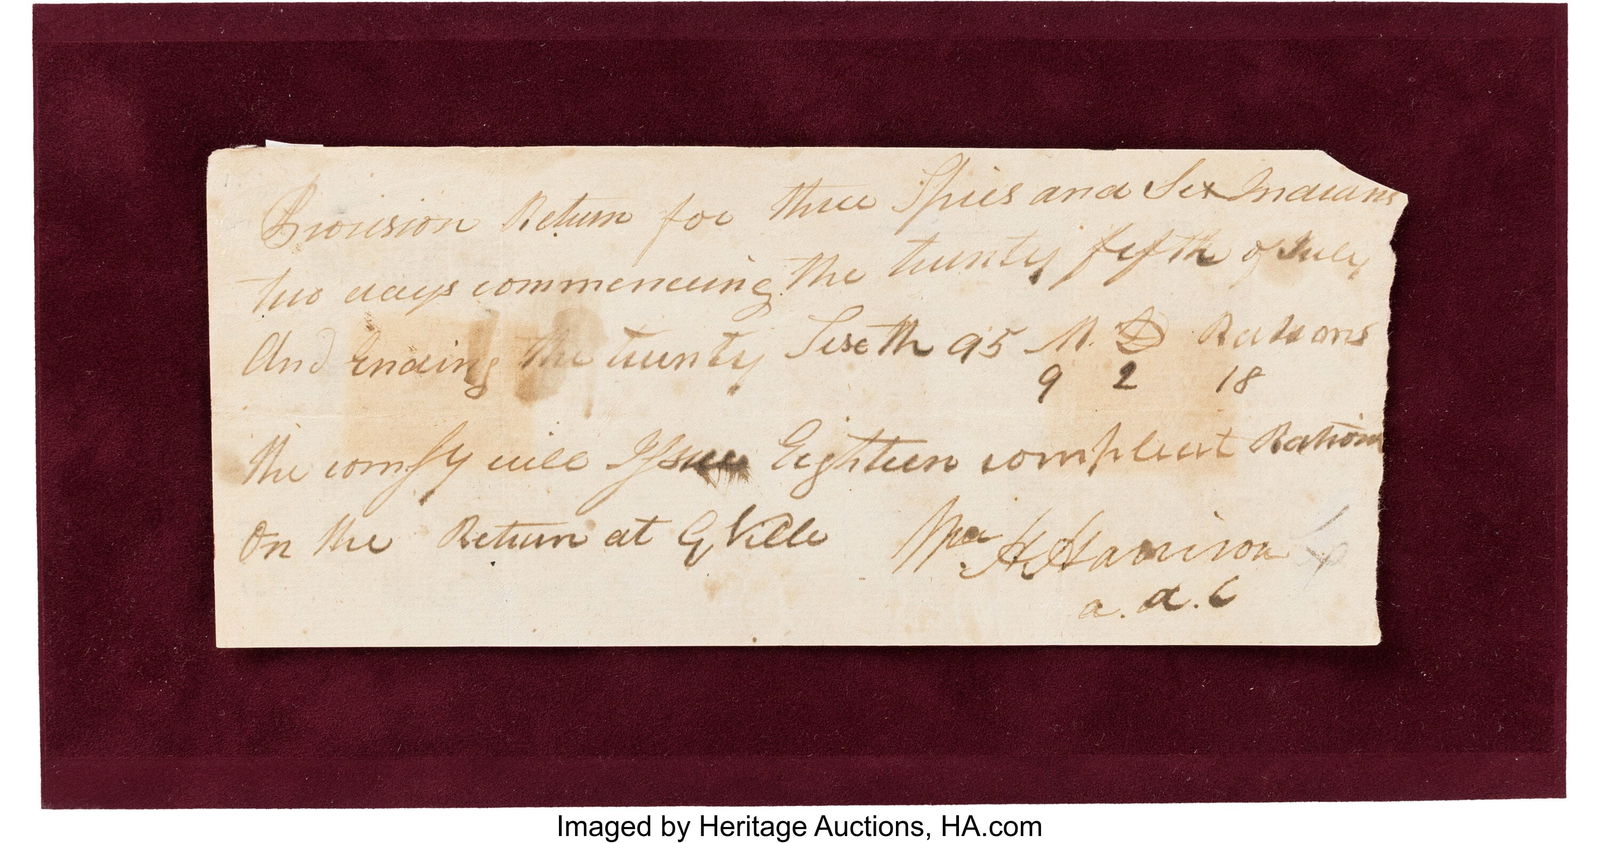 Provision Return for three Spies and Six Indians
two days commenceing the twenty fifth of July
And Ending the twenty Sixth 95 M. D Rations
9 2 18
the comsy will Issue Eighteen compleat Rations
On the Return at G Ville Wm H Harrison
a. d. C
Imaged by Heritage Auctions, HA.com